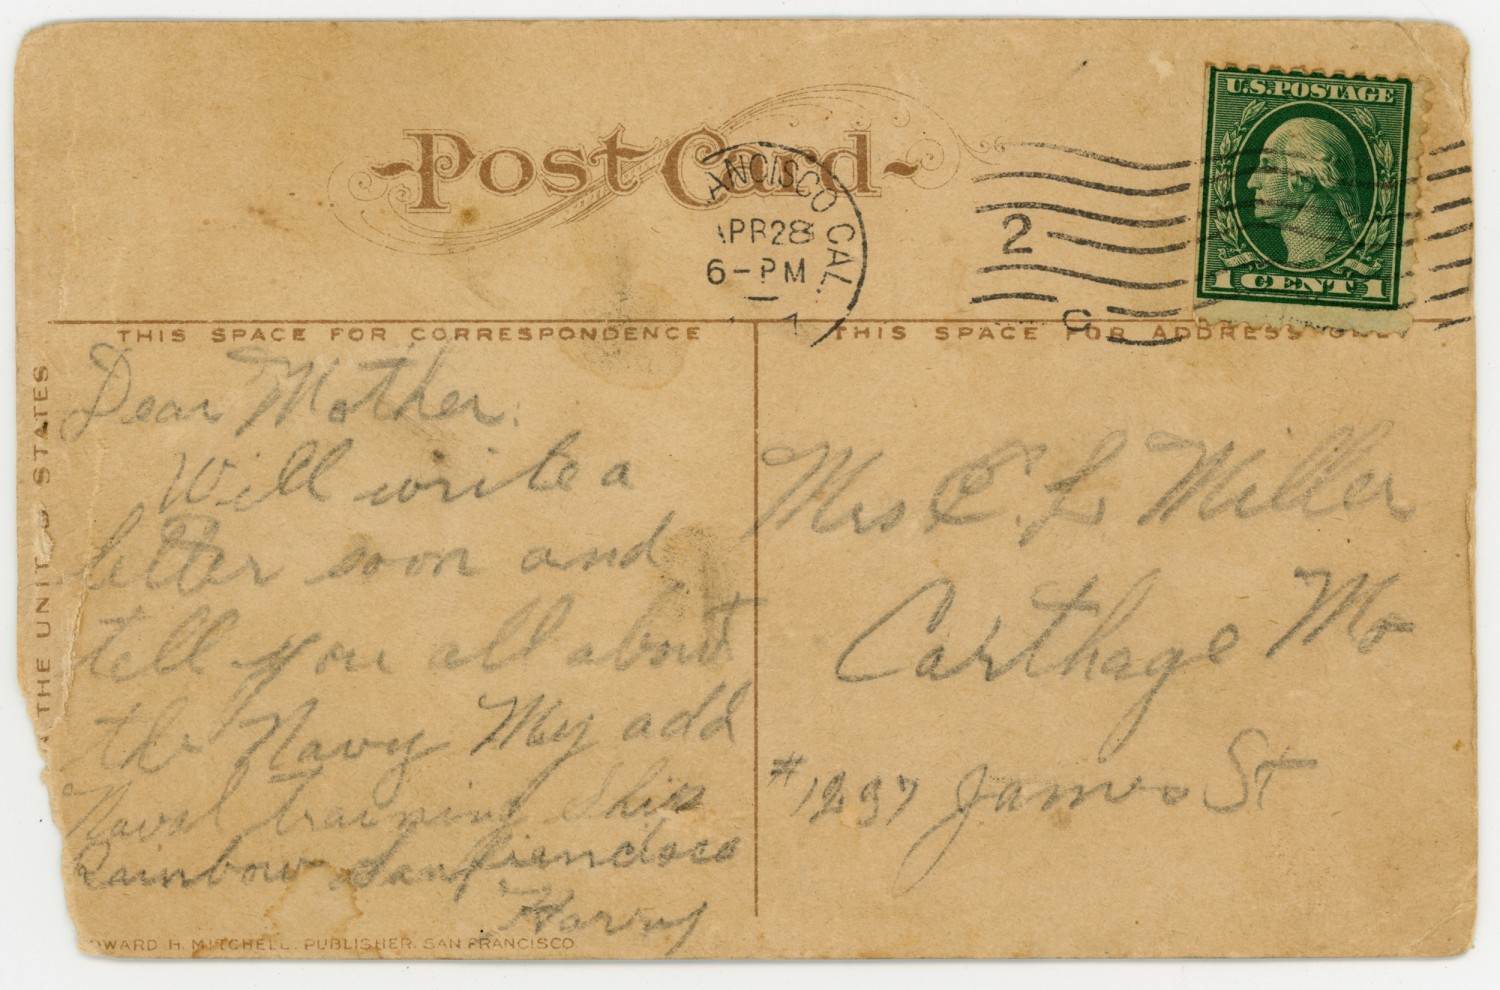 Post Card
ANCISCO CAL.
APR 28
6-PM
2
C
U.S.POSTAGE
1 CENT 1
THIS SPACE FOR CORRESPONDENCE
THIS SPACE FOR ADDRESS ONLY
THE UNITED STATES
Dear Mother.
Will write a
letter soon and
tell you all about
the Navy My add
Naval Training Ship
Rainbow San
Harry
Mrs C. L Miller
Carthage Mo
#1237 James St
DWARD H. MITCHELL. PUBLISHER. SAN FRANCISCO